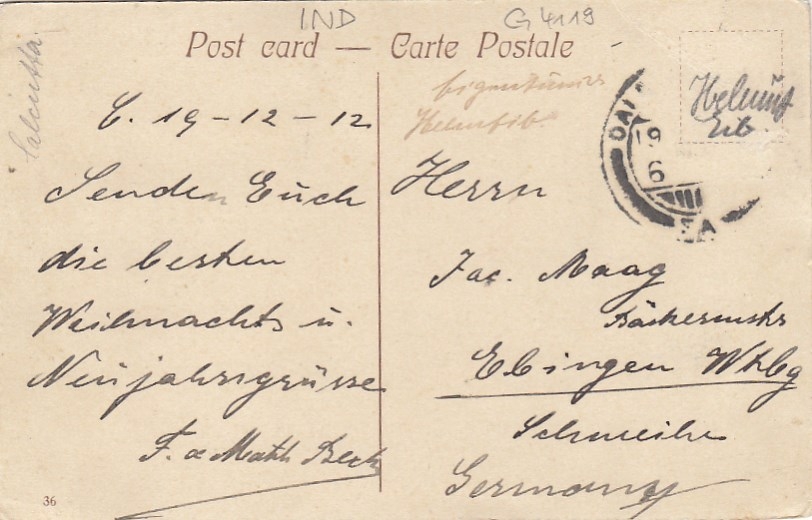 IND
G 4119
Post card — Carte Postale
Calcutta.
C. 19-12-12
Senden Euch
die besten
Weihnachts u.
Neujahrsgrüsse
F. & Math Beck
36
Eigentümer
Helmut
Herrn
Jac. Maag
Bäckermstr
Ebingen Wtbg
Germany